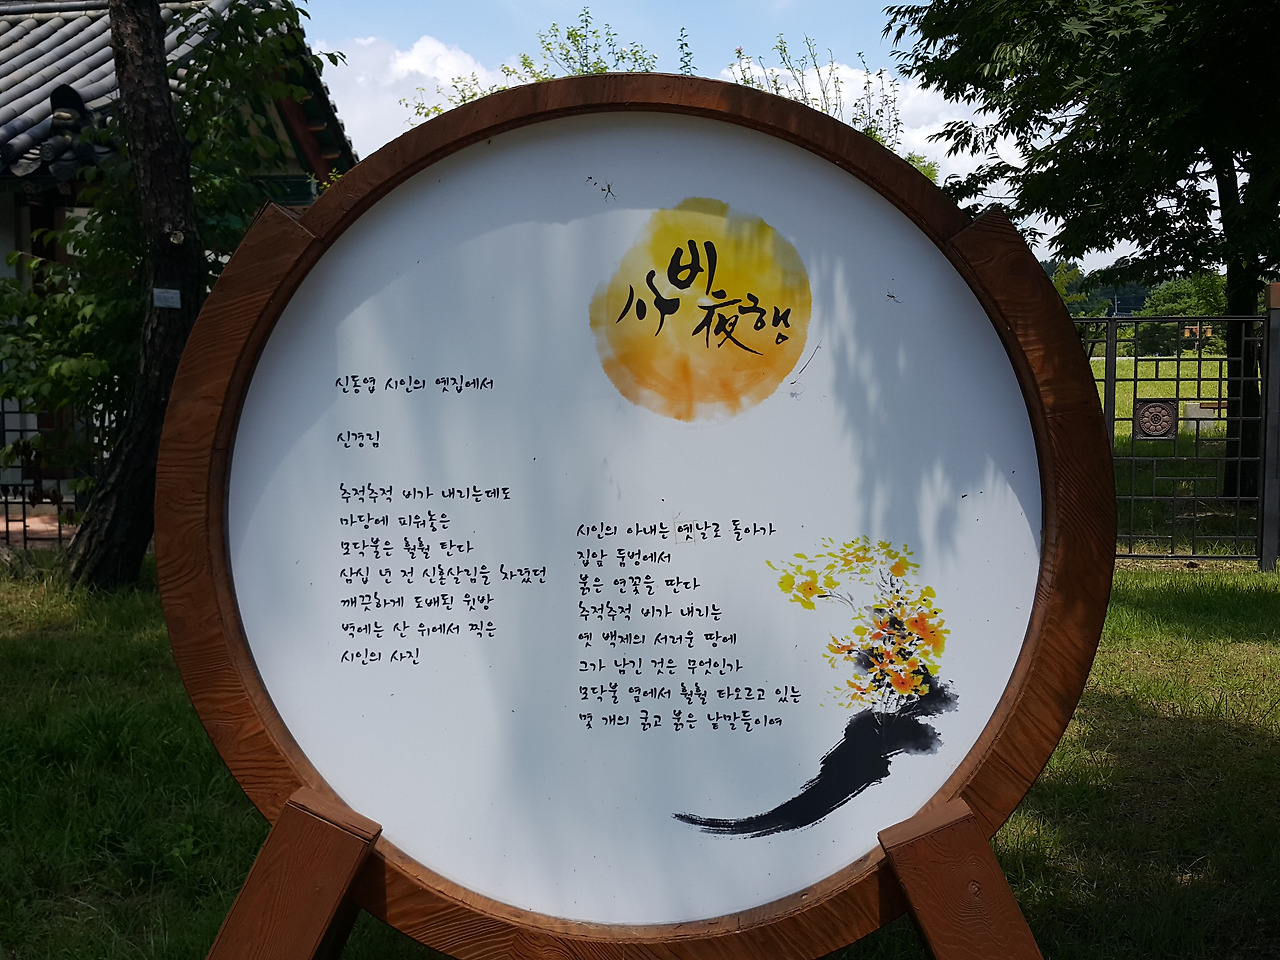 사비夜행
신동엽 시인의 옛집에서
신경림
추적추적 비가 내리는데도
마당에 피워놓은
모닥불은 훨훨 탄다
삼십 년 전 신혼살림을 차렸던
깨끗하게 도배된 윗방
벽에는 산 위에서 찍은
시인의 사진
시인의 아내는 옛날로 돌아가
집앞 둠벙에서
붉은 연꽃을 딴다
추적추적 비가 내리는
옛 백제의 서러운 땅에
그가 남긴 것은 무엇인가
모닥불 옆에서 훨훨 타오르고 있는
몇 개의 굵고 붉은 낱말들이여